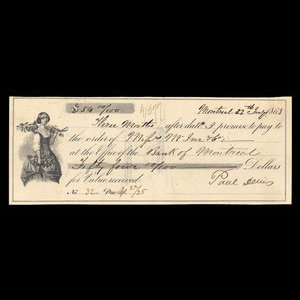 $54 00/100 Montreal 22nd
Three Months after date I promise to pay to
the order of Messrs
at the Office of the Bank of Montreal
Fifty four 00/100 Dollars
for Value received
No. 32 Due Paul